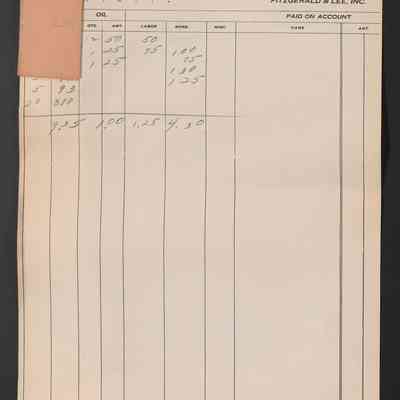 FITZGERALD & LEE, INC.
OIL PAID ON ACCOUNT
QTS. AMT. LABOR MDSE. MISC. NAME AMT.
2 50 50
1 25 75 1.00
1 25 75
1.30
1.25
5 93
9.35 1.00 1.25 4.30